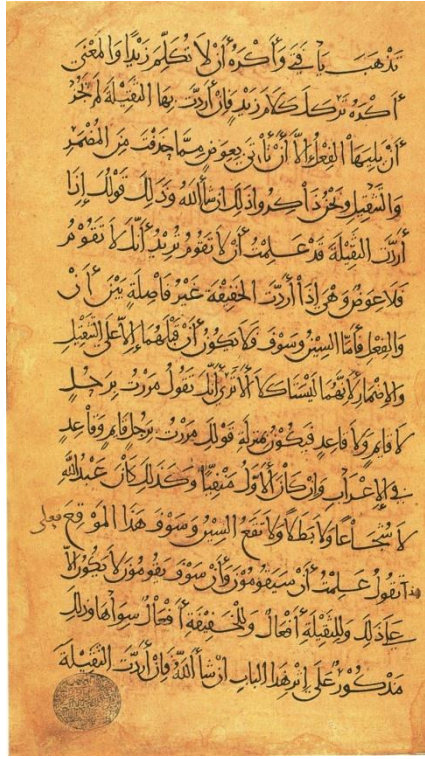 تَذْهَبَ يَا فَتَى وَأَكْرَهُ أَنْ لَا تُكَلِّمَ زَيْدًا وَالْمَعْنَى
أَكْرَهُ تَرْكَكَ كَلَامَ زَيْدٍ فَإِنْ أَرَدْتَ بِهَا الثَّقِيلَةَ لَمْ يَجُزْ
أَنْ يَلِيَهَا الْفِعْلُ إِلَّا أَنْ تَأْتِيَ بِعِوَضٍ مِمَّا حَذَفْتَ مِنَ الْمُضْمَرِ
وَالتَّثْقِيلِ وَنَحْنُ ذَاكِرُوا ذَلِكَ إِنْ شَا اللَّهُ وَذَلِكَ قَوْلُكَ إِذَا
أَرَدْتَ الثَّقِيلَةَ قَدْ عَلِمْتُ أَنْ لَا تَقُومُ تُرِيدُ أَنَّكَ لَا تَقُومُ
فَلَا عِوَضٌ وَهِيَ إِذَا أَرَدْتَ الْخَفِيفَةَ غَيْرُ فَاصِلَةٍ بَيْنَ أَنْ
وَالْفِعْلِ فَأَمَّا السِّينُ وَسَوْفَ فَلَا يَكُونُ أَنْ قَبْلَهُمَا إِلَّا عَلَى التَّثْقِيلِ
وَالْإِضْمَارِ لِأَنَّهُمَا لَيْسَتَا كَلَا أَلَا تَرَى أَنَّكَ تَقُولُ مَرَرْتُ بِرَجُلٍ
لَا قَايِمٍ وَلَا قَاعِدٍ فَيَكُونُ بِمَنْزِلَةِ قَوْلِكَ مَرَرْتُ بِرَجُلٍ قَايِمٍ وَقَاعِدٍ
فِي الْإِعْرَابِ وَإِنْ كَانَ الْأَوَّلُ مَنْفِيًّا وَكَذَلِكَ كَانَ عَبْدُ اللَّهِ
لَا شُجَاعًا وَلَا بَطَلًا وَلَا تَقَعُ السِّينُ وَسَوْفَ هَذَا الْمَوْقِعَ فعلى
هذا تَقُولُ عَلِمْتُ أَنْ سَيَقُومُونَ وَأَنْ سَوْفَ يَقُومُونَ لَا يَكُونُ إِلَّا
عَلَى ذَلِكَ وَلِلثَّقِيلَةِ أَفْعَالٌ وَلِلْخَفِيفَةِ أَفْعَالٌ سِوَاهَا وَذَلِكَ
مَذْكُورٌ عَلَى إِثْرِ هَذَا الْبَابِ إِنْ شَا اللَّهُ فَإِنْ أَرَدْتَ الثَّقِيلَةَ